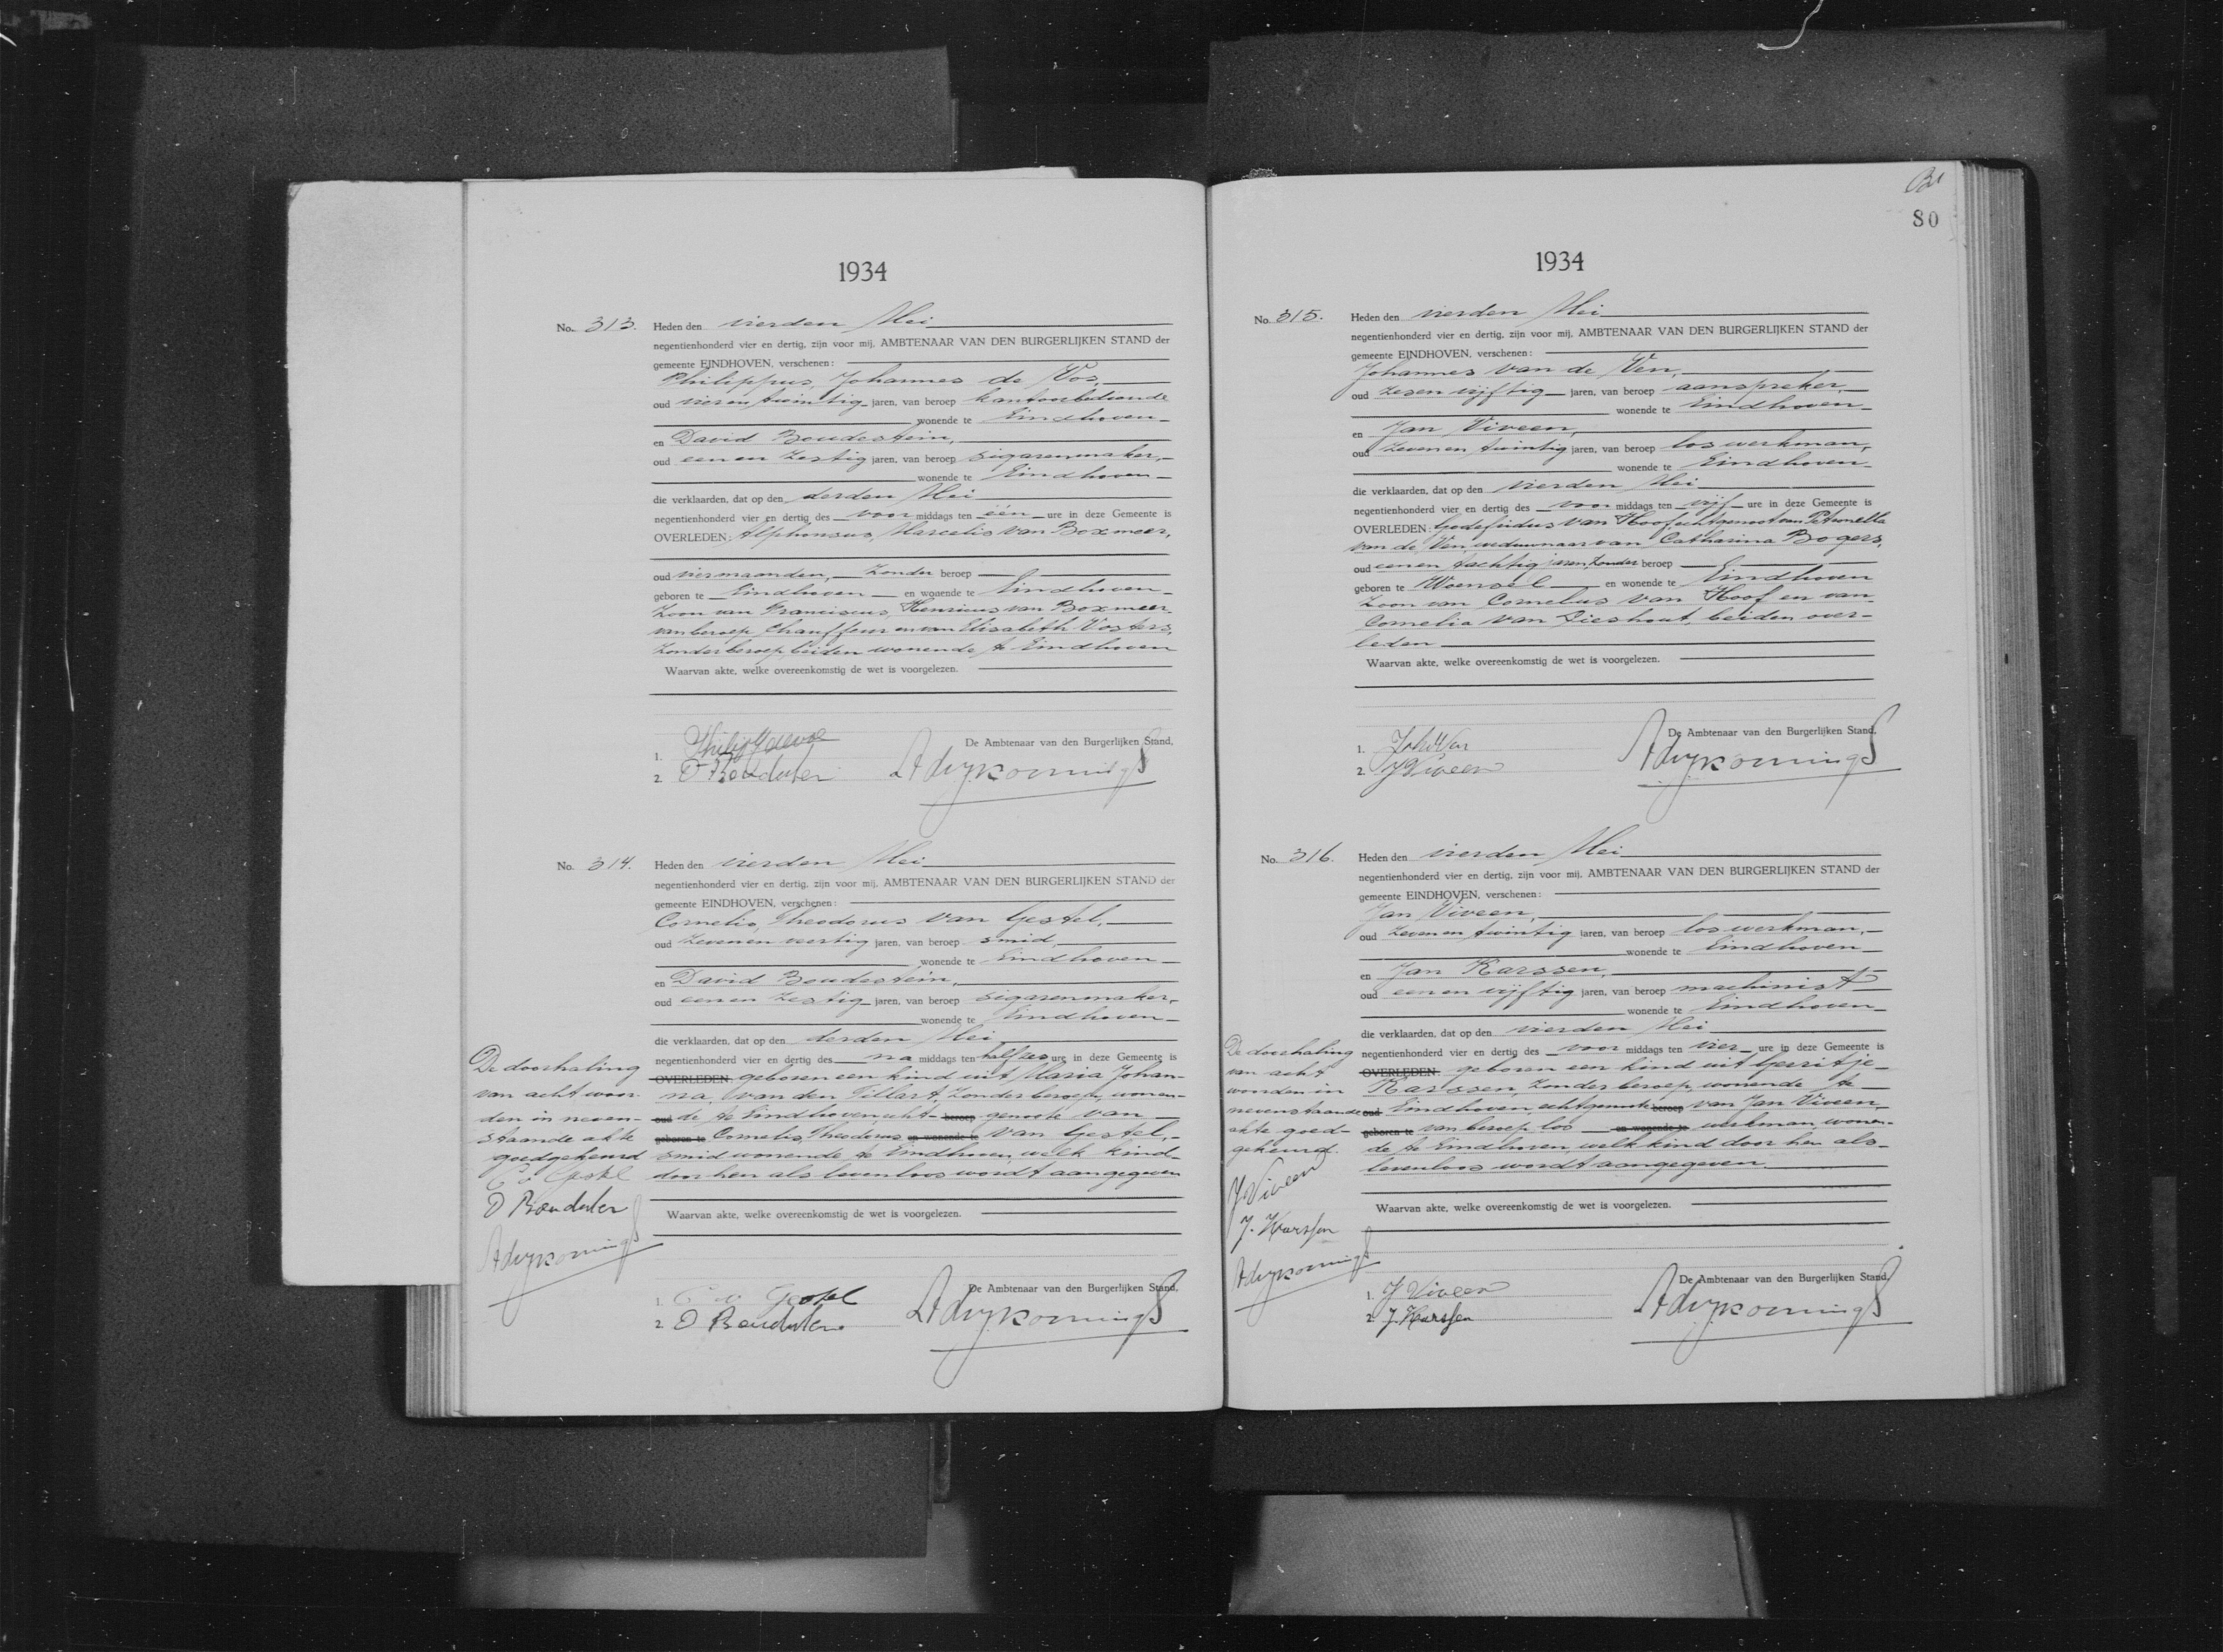 1934
No. 313. Heden den vierden Mei
negentienhonderd vier en dertig, zijn voor mij, AMBTENAAR VAN DEN BURGERLIJKEN STAND der
gemeente EINDHOVEN, verschenen:
Philippus, Johannes de Vos,
oud vier en twintig jaren, van beroep kantoorbediende
wonende te Eindhoven
en David Boudestein,
oud een en zestig jaren, van beroep sigarenmaker,
wonende te Eindhoven
die verklaarden, dat op den derden Mei
negentienhonderd vier en dertig des voor middags ten één ure in deze Gemeente is
OVERLEDEN: Alphonsus, Marcelis van Boxmeer,
oud vier maanden, zonder beroep
geboren te Eindhoven en wonende te Eindhoven
zoon van Franciscus, Henricus van Boxmeer
van beroep chauffeur en van Elisabeth Vosters,
zonder beroep beiden wonende te Eindhoven
Waarvan akte, welke overeenkomstig de wet is voorgelezen.
De Ambtenaar van den Burgerlijken Stand,
1.
2.
No. 314. Heden den vierden Mei
negentienhonderd vier en dertig, zijn voor mij, AMBTENAAR VAN DEN BURGERLIJKEN STAND der
gemeente EINDHOVEN, verschenen:
Cornelis, Theodorus van Gestel,
oud zeven en veertig jaren, van beroep smid,
wonende te Eindhoven
en David Boudestein,
oud een en zestig jaren, van beroep sigarenmaker,
wonende te Eindhoven
die verklaarden, dat op den derden Mei
negentienhonderd vier en dertig des na middags ten half zes ure in deze Gemeente is
OVERLEDEN: geboren een kind uit Maria Johan-
na, van den Tillart, zonder beroep, wonen-
oud de te Eindhoven, echt- beroep genoote van
geboren te Cornelis, Theodorus en wonende te van Gestel,
smid wonende te Eindhoven, welk kind
door hen als levenloos wordt aangegeven
Waarvan akte, welke overeenkomstig de wet is voorgelezen.
De doorhaling
van acht woor-
den in neven-
staande akte
goedgekeurd
C v Gestel
De Ambtenaar van den Burgerlijken Stand,
1. C v Gestel
2.
80
1934
No. 315. Heden den vierden Mei
negentienhonderd vier en dertig, zijn voor mij, AMBTENAAR VAN DEN BURGERLIJKEN STAND der
gemeente EINDHOVEN, verschenen:
Johannes van de Ven,
oud zes en vijftig jaren, van beroep aanspreker,
wonende te Eindhoven
en Jan Viveen,
oud zeven en twintig jaren, van beroep los werkman,
wonende te Eindhoven
die verklaarden, dat op den vierden Mei
negentienhonderd vier en dertig des voor middags ten vijf ure in deze Gemeente is
OVERLEDEN: Godefridus van Hoof, echtgenoot van Petronella
van de Ven, weduwnaar van Catharina Bogers,
oud een en tachtig jaren, zonder beroep
geboren te Woensel en wonende te Eindhoven
zoon van Cornelius van Hoof en van
Cornelia van Lieshout, beiden over-
leden
Waarvan akte, welke overeenkomstig de wet is voorgelezen.
De Ambtenaar van den Burgerlijken Stand,
1.
2. J Viveen
No. 316. Heden den vierden Mei
negentienhonderd vier en dertig, zijn voor mij, AMBTENAAR VAN DEN BURGERLIJKEN STAND der
gemeente EINDHOVEN, verschenen:
Jan Viveen,
oud zeven en twintig jaren, van beroep los werkman,
wonende te Eindhoven
en Jan Karssen,
oud een en vijftig jaren, van beroep machinist
wonende te Eindhoven
die verklaarden, dat op den vierden Mei
negentienhonderd vier en dertig des voor middags ten vier ure in deze Gemeente is
OVERLEDEN: geboren een kind uit Gerritje
Karssen, zonder beroep, wonende te
oud Eindhoven, echtgenoote beroep van Jan Viveen,
geboren te van beroep los en wonende te werkman, wonen-
de te Eindhoven welk kind door hen als
levenloos wordt aangegeven.
Waarvan akte, welke overeenkomstig de wet is voorgelezen.
De doorhaling
van acht
woorden in
nevenstaande
akte goed-
gekeurd.
J Viveen
J. Karssen
De Ambtenaar van den Burgerlijken Stand,
1. J Viveen
2. J. Karssen